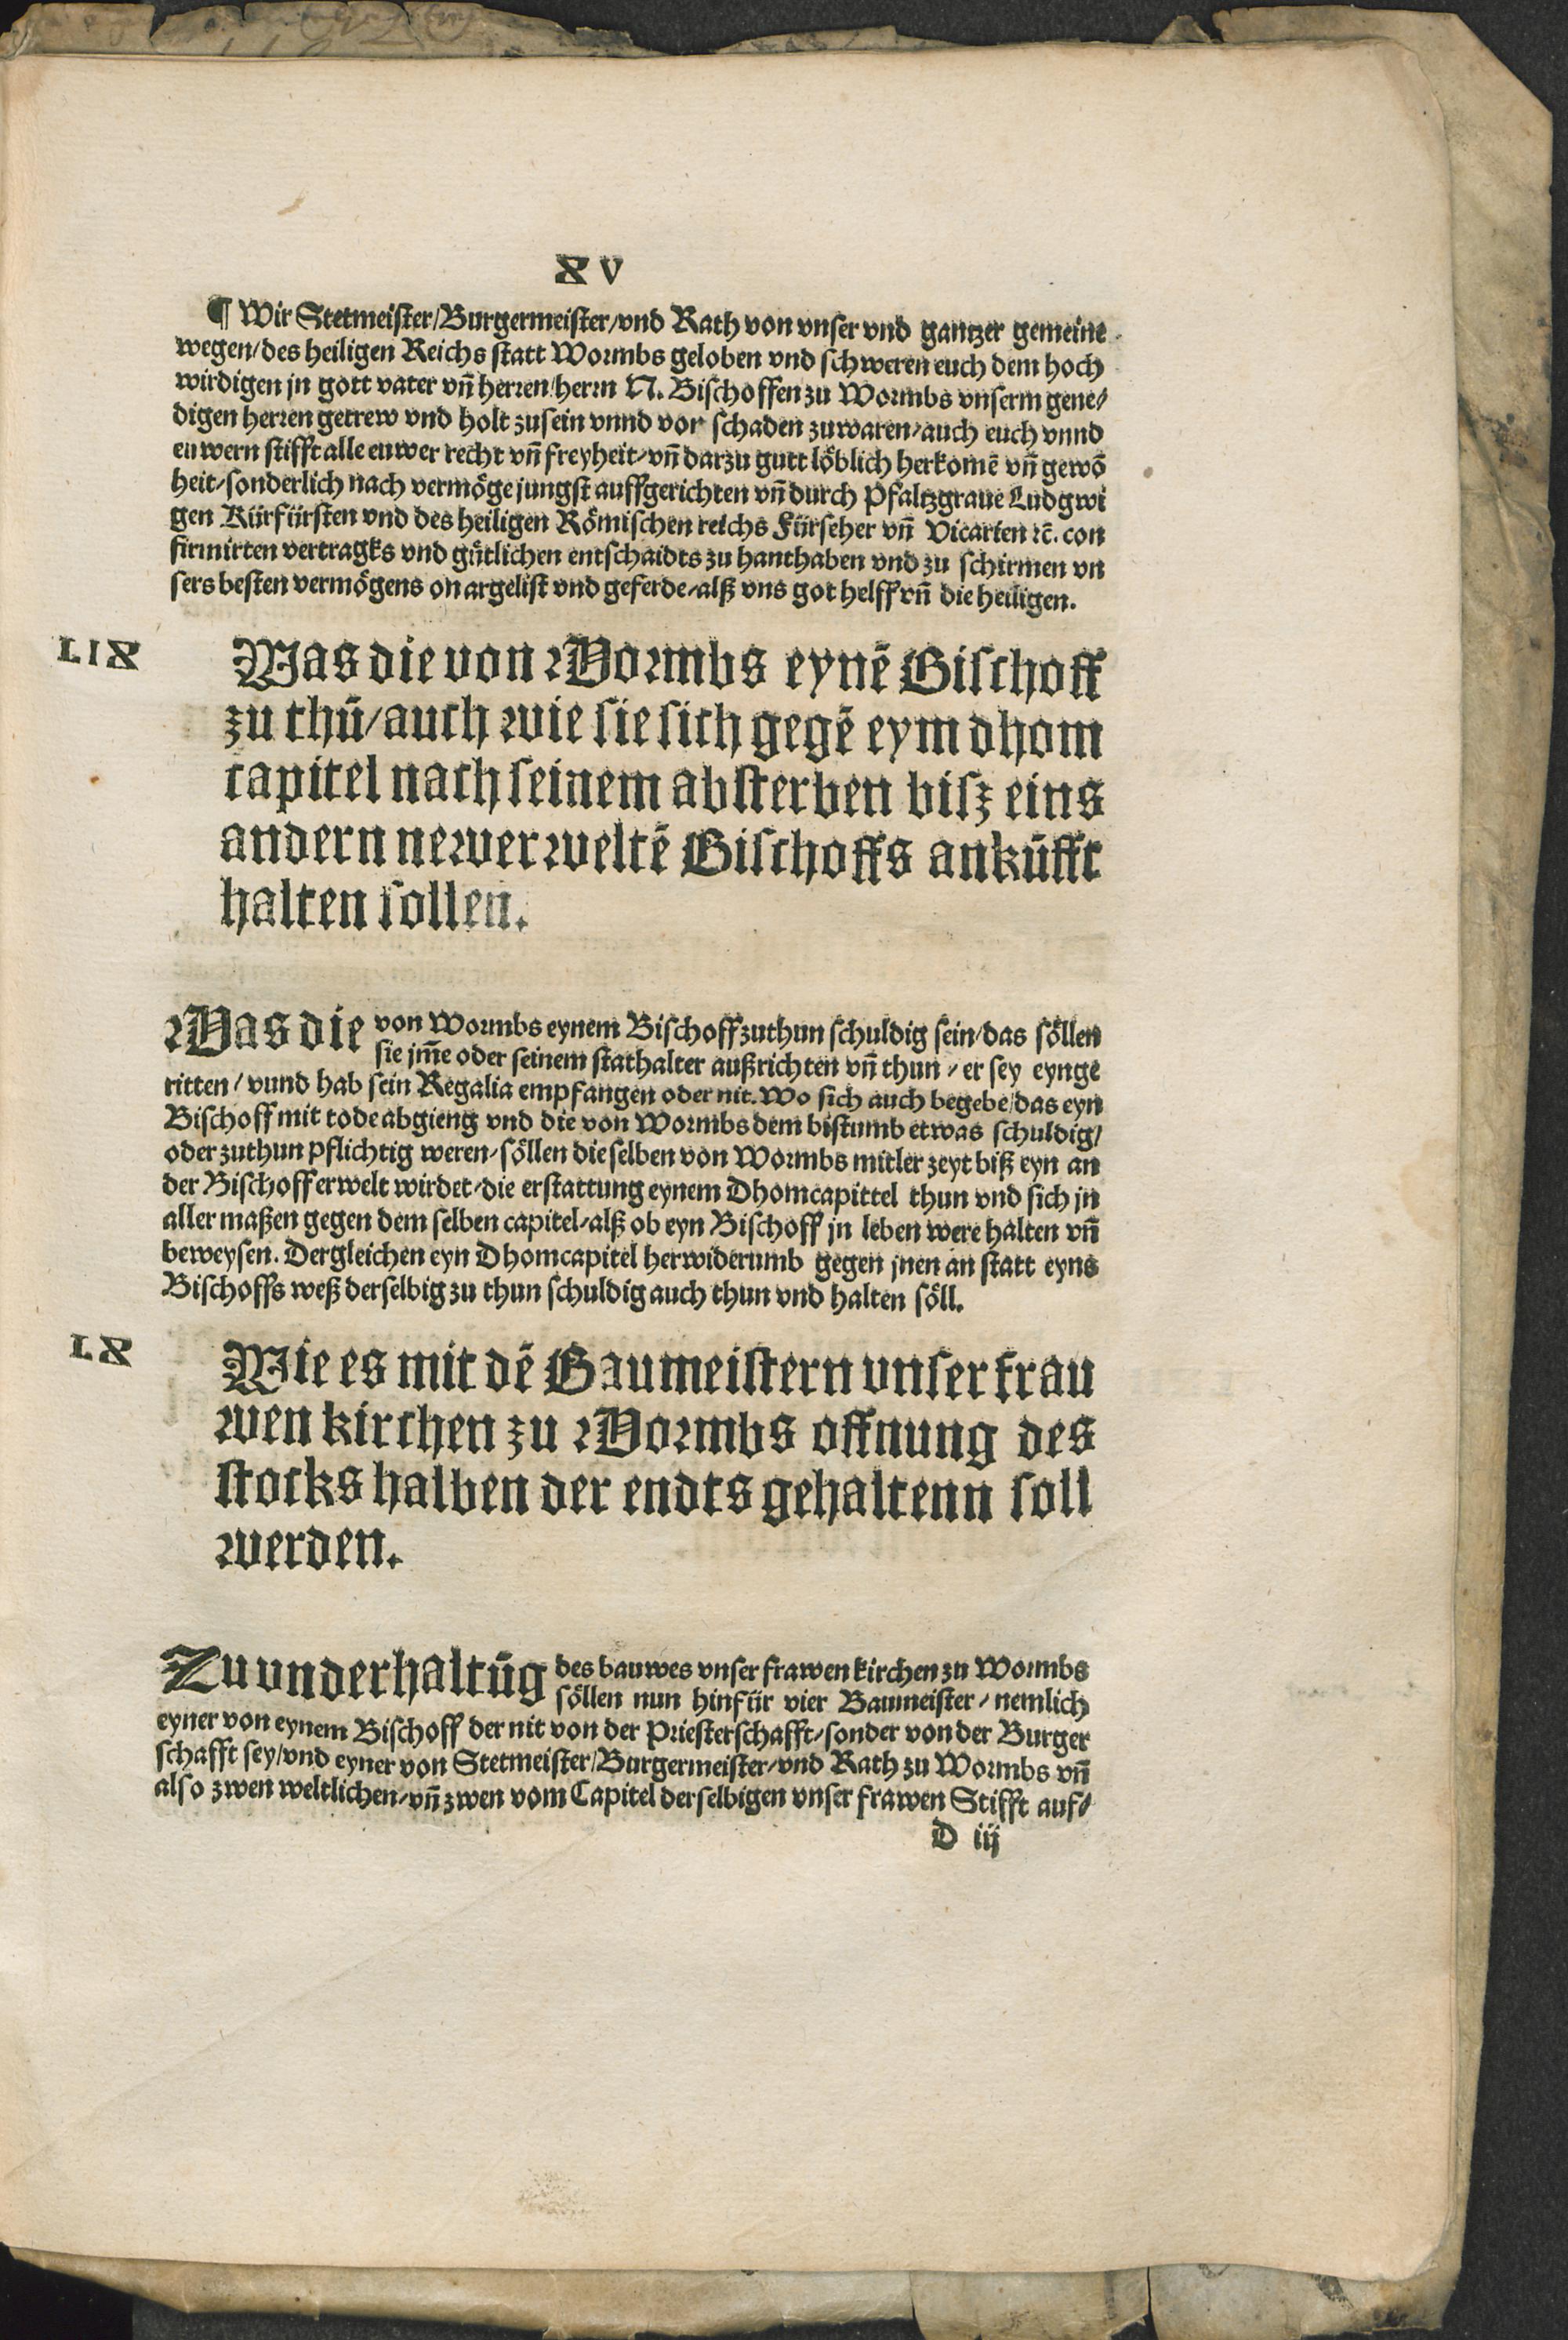 XV
¶ Wir Stetmeister/Burgermeister/vnd Rath von vnser vnd gantzer gemeine
wegen/des heiligen Reichs statt Wormbs geloben vnd schweren euch dem hoch
wirdigen jn gott vater vñ herren/herrn N. Bischoffen zu Wormbs vnserm gene/
digen herren getrew vnd holt zusein vnnd vor schaden zuwaren/auch euch vnnd
euwern stifft alle euwer recht vñ freyheit/vñ darzu gutt löblich herkomē vñ gewō
heit/sonderlich nach vermöge jungst auffgerichten vñ durch Pfaltzgraue Ludgwi
gen Kürfürsten vnd des heiligen Römischen reichs Fürseher vñ Vicarien ꝛc̄. con
firmirten vertragks vnd gütlichen entschaidts zu hanthaben vnd zu schirmen vn
sers besten vermögens on argelist vnd geferde/alß vns got helff vñ die heiligen.
LIX
Was die von Wormbs eynē Bischoff
zu thū/auch wie sie sich gegē eym dhom
capitel nach seinem absterben bisz eins
andern newerweltē Bischoffs ankūfft
halten sollen.
Was die von Wormbs eynem Bischoff zuthun schuldig sein/das söllen
sie jm̄e oder seinem stathalter außrichten vñ thun/er sey eynge
ritten/vnnd hab sein Regalia empfangen oder nit. Wo sich auch begebe/das eyn
Bischoff mit tode abgieng vnd die von Wormbs dem bistumb etwas schuldig/
oder zuthun pflichtig weren/söllen die selben von Wormbs mitler zeyt biß eyn an
der Bischoff erwelt wirdet/die erstattung eynem Dhomcapittel thun vnd sich jn
aller maßen gegen dem selben capitel/alß ob eyn Bischoff jn leben were halten vñ
beweysen. Dergleichen eyn Dhomcapitel herwiderumb gegen jnen an statt eyns
Bischoffs weß derselbig zu thun schuldig auch thun vnd halten söll.
LX
Wie es mit dē Baumeistern vnser frau
wen kirchen zu Wormbs offnung des
stocks halben der endts gehaltenn soll
werden.
Zu vnderhaltūg des bauwes vnser frawen kirchen zu Wormbs
söllen nun hinfür vier Baumeister/nemlich
eyner von eynem Bischoff der nit von der Priesterschafft/sonder von der Burger
schafft sey/vnd eyner von Stetmeister/Burgermeister/vnd Rath zu Wormbs vñ
also zwen weltlichen/vñ zwen vom Capitel derselbigen vnser frawen Stifft auf/
D iij